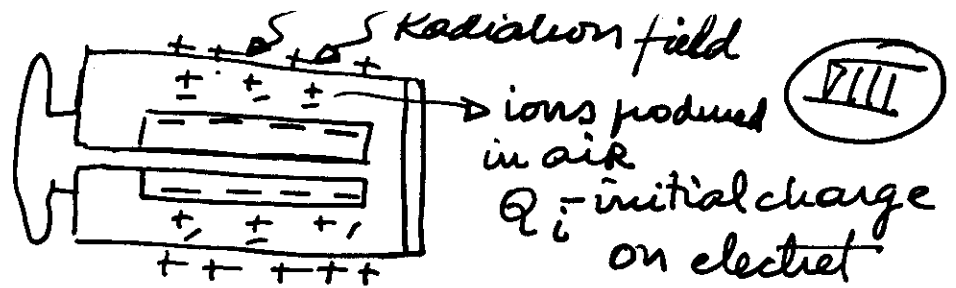 Radiation field
ions produced
in air
Qi - initial charge
on electret